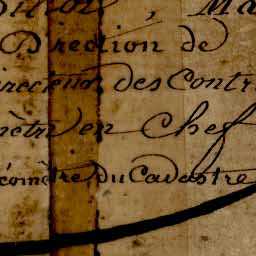 Direction de
Directeur des Contri
mètre en Chef
éomètre Du Cadastre